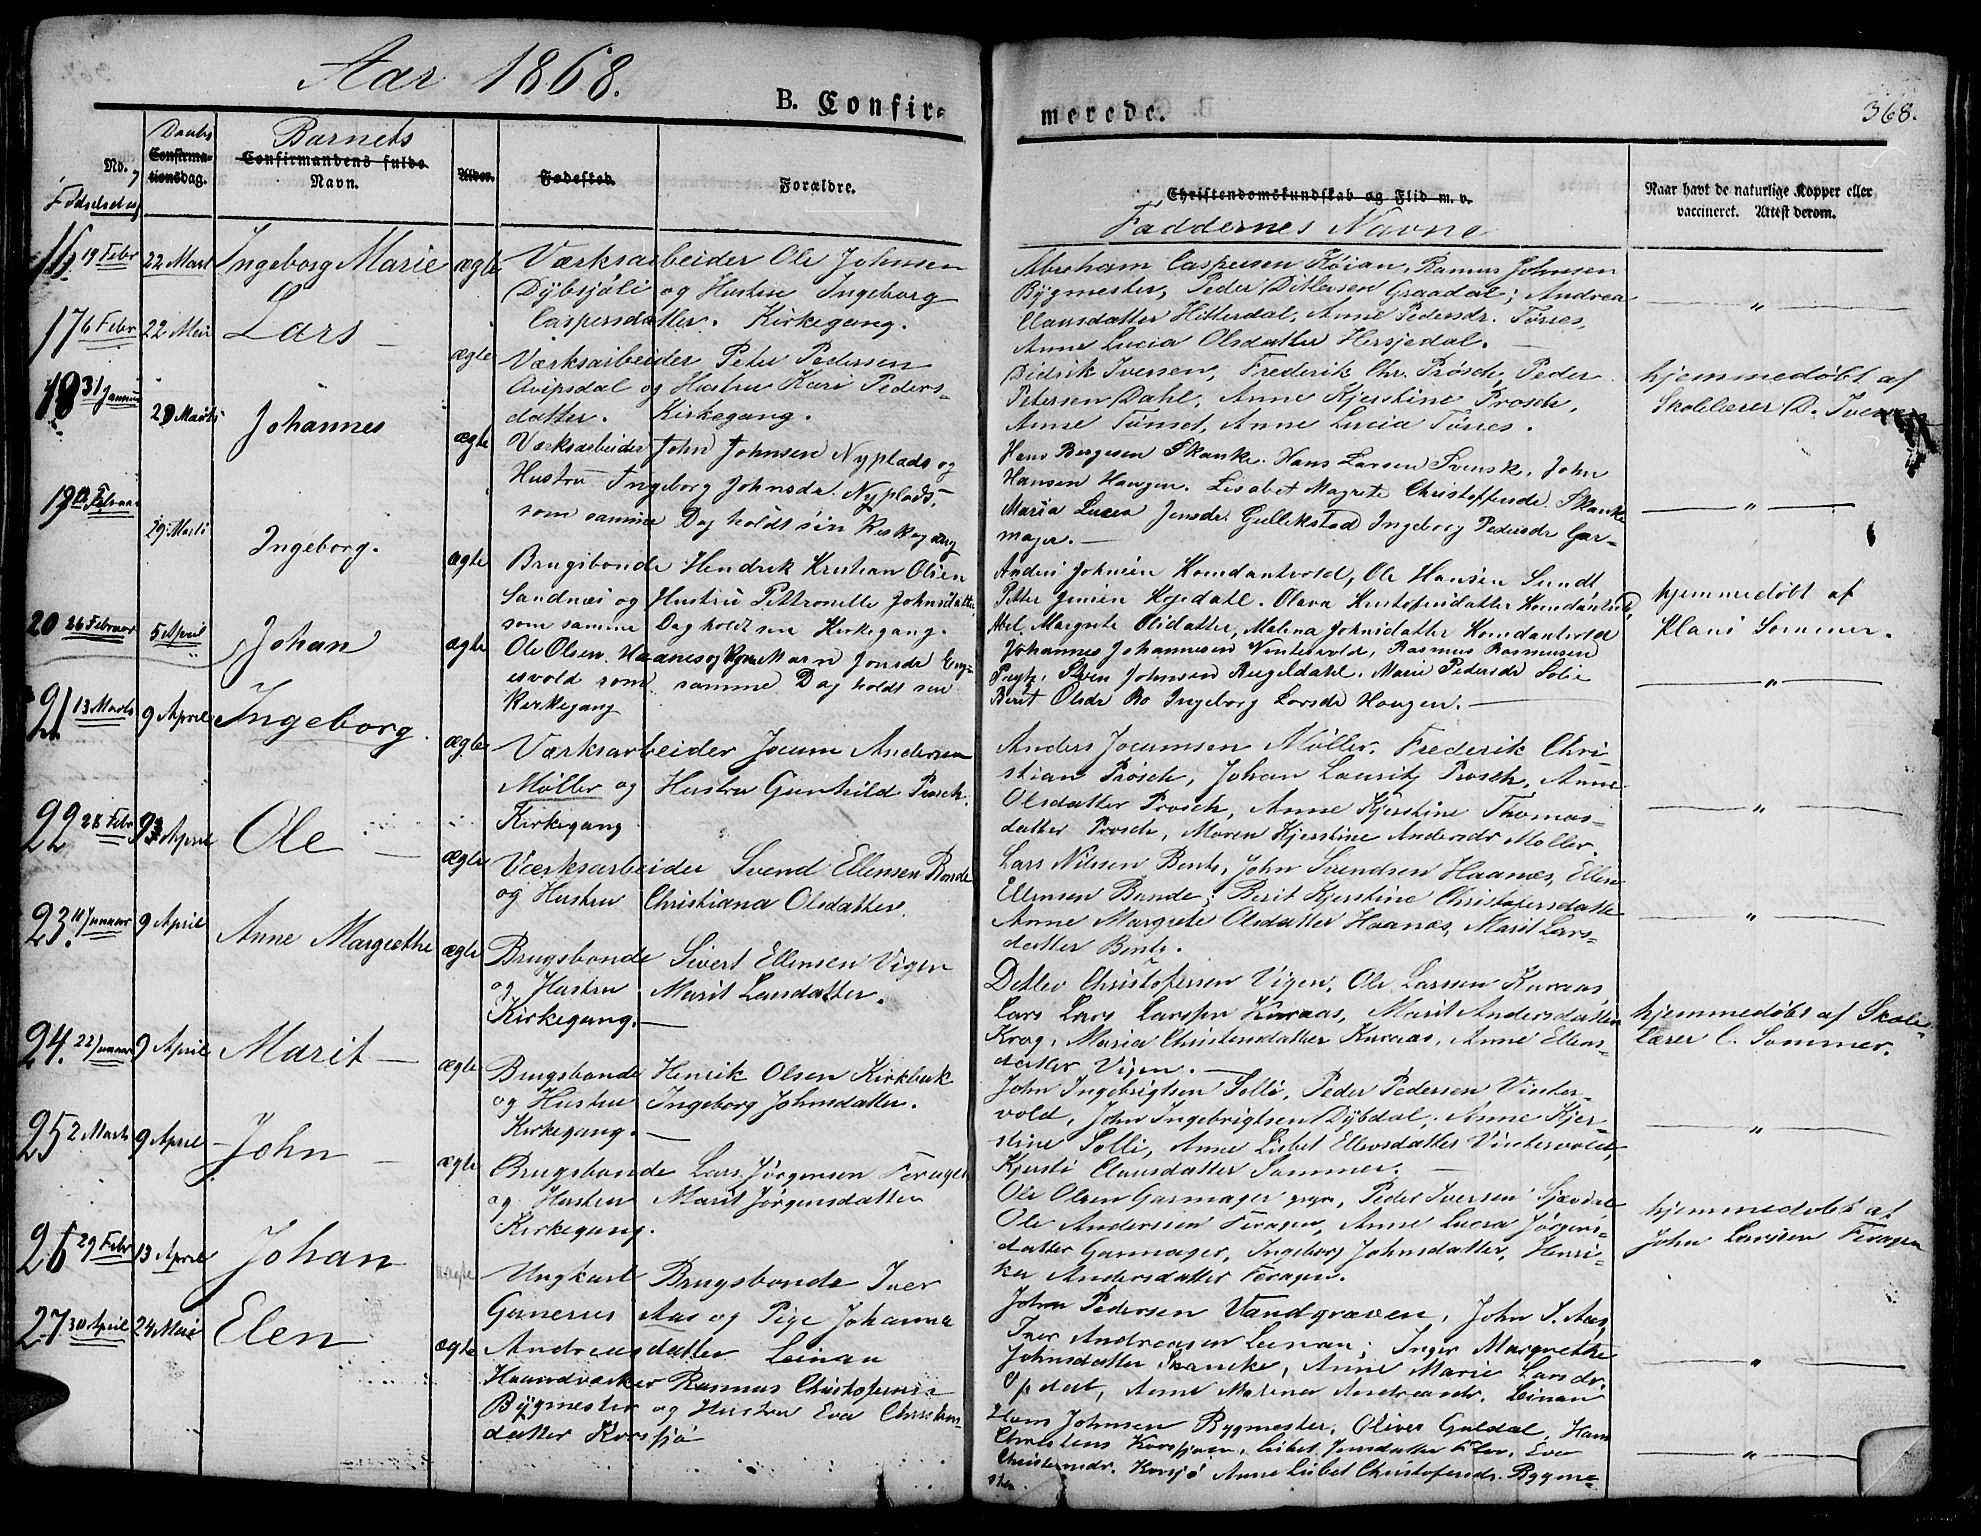 Aar 1868.
B. Confir-
merede.
368.
No.
Fødselsdag
Daabs
Confirma-
tionsdag.
Barnets
Confirmandens fulde
Navn.
Alder.
Fødested.
Forældre.
Christendomskundskab og Flid m. v.
Faddernes Navne
Naar havt de naturlige Kopper eller
vaccineret. Attest derom.
16 19 Febr 22 Mart Ingeborg Marie ægte
Værksarbeider Ole Johnsen
Dybsjöli og Hustru Ingeborg
Caspersdatter. Kirkegang.
Abraham Caspersen Röian, Ramus Johnsen
Bygmester, Peder Ditlevsen Graadal; Andrea
Clausdatter Hitterdal, Anne Pedersdr. Törres,
Anne Lucia Olsdatter Hersjedal.
"
17 6 Febr 22 Mart Lars ægte
Værksarbeider Peter Pedersen
og Hustru Kari Peders-
datter. Kirkegang.
Didrik Iversen, Frederik Chr. Prösch, Peder
Petersen Dahl, Anne Kjerstine Prosch,
Anne Tönset, Anne Lucia Törres.
hjemmedøbt af
Skolelærer D. Iversen
18 31 Januar 29 Marts Johannes ægte
Værksarbeider John Johnsen Nyplads og
Hustru Ingeborg Johnsdr. Nyplads,
som samme Dag holdt sin Kirkegang
Hans Bergesen Skanke. Hans Larsen Svensk, John
Hansen Hangen. Lisabet Magrete Christoffersdr. Skanke
Maria Lucia Jensdr. Gullikstad Ingeborg Pedersdr Gar-
majer.
"
19 Februar 29 Marts Ingeborg. ægte
Brugsbonde Hendrik Kristian Olsen
Sandnæs og Hustru Pettronelle Johnsdatter
som samme Dag holdt sin Kirkegang.
Anders Johnsen Komdantvold, Ole Hansen Sundt
Petter Jensen Hyedahl. Olava Kristofersdatter Komdantvold
Abel Margrete Olsdatter, Malena Johnsdatter Komdantvold
hjemmedöbt af
Klaus Sommer.
20 26 Februar 5 April Johan ægte
Ole Olsen Haanes og Marn Jonsdr Eng-
esvold som samme Dag holdt sin
Kirkegang
Johannes Johannesen Vintervold, Rasmus Rasmusen
Prytz, Sven Johnsen Rugeldahl. Marie Pedersdr Solie
Berit Olsdr Bo Ingeborg Larsdr Hangen.
"
21 13 Marts 9 April Ingeborg. ægte
Værksarbeider Jocum Andersen
Møller og Hustru Gunhild Prosch.
Kirkegang
Anders Jocumsen Møller, Frederik Chri-
stian Prösch, Johan Lauritz Prosch, Anne
Olsdatter Prosch, Anne Kjerstine Thomas-
datter Prosch, Maren Kjerstine Andersdr Møller.
"
22 28 Febr 9 April Ole ægte
Værksarbeider Svend Ellensen Bonde
og Hustru Christiana Olsdatter.
Lars Nilssen Bents, John Svendsen Haanæs, Ellen
Ellensen Bonde; Berit Kjerstine Christofersdatter
Anne Margrete Olsdatter Haanæs, Marit Lars-
datter Bents.
"
23. 11 Januar 9 April Anne Margrethe ægte
Brugsbonde Sivert Ellensen Vigen
og Hustru Marit Larsdatter.
Kirkegang.
Detlev Christofersen Vigen, Ole Larsen Kuraas
Lars Lars Larssen Kuraas, Marit Andersdatter
Krog, Maria Christensdatter Kuraas, Anne Ellens-
datter Vigen.
hjemmedöbt af Skole-
lærer C. Sommer.
24. 22 Januar 9 April Marit ægte
Brugsbonde Henrik Olsen Kirkbæk
og Hustru Ingeborg Johnsdatter.
Kirkegang.
John Ingebrigtsen Solli, Peder Pedersen Vinter-
vold, John Ingebrigtsen Dybdal, Anne Kjer-
stine Solli, Anne Lisbet Ellensdatter Vintervold,
Kjersti Clausdatter Sommer.
"
25 2 Marts 9 April John ægte
Brugsbonde Lars Jørgensen Feragen
og Hustru Marit Jørgensdatter
Kirkegang.
Ole Olsen Garmager, Peder Iversen
Ole Anderssen Feragen, Anne Lucia Jörgens-
datter Garmager, Ingeborg Johnsdatter, Henri-
ke Andersdatter Feragen.
hjemmedøbt af
John Larssen Feragen
26 29 Febr 13 April Johan uægte
Ungkarl Brugsbonde Iver
Aas og Pige Johanna
Andreasdatter Leinan
John Pedersen Vandgraven, John I. Aas,
Iver Andreassen Leinan; Inger Margrethe
Johnsdatter Skancke, Anne Marie Larsdr.
Opdal, Anne Malena Andreasdr. Leinan
"
27 30 April 24 Mai Elen ægte
Haandværker Rasmus Christofersen
Bygmester og Hustru Eva Christens-
datter Korssjö
Hans Johnsen Bygmester, Oliver Guldal, Hans
Christens Korssjöen, Lisbet Jensdatter, Eva
Christensdr. Korsjö Anne Lisbet Christofersdr. Bygme-
ster.
"